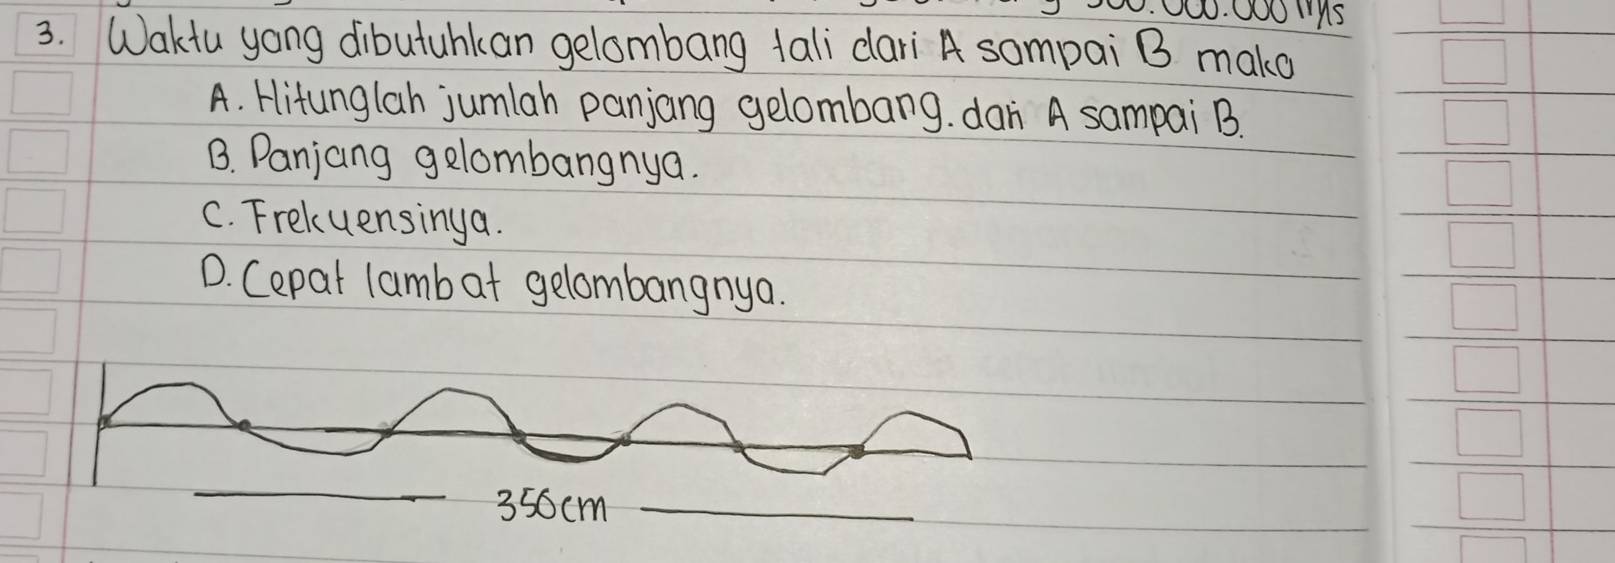 3. Waktu yang dibutuhkan gelombang tali dari A sampai B maka
A. Hitunglah jumlah panjang gelombang. dari A sampai B.
B. Panjang gelombangnya.
C. Frekuensinya.
D. Cepat lambat gelombangnya.
350cm